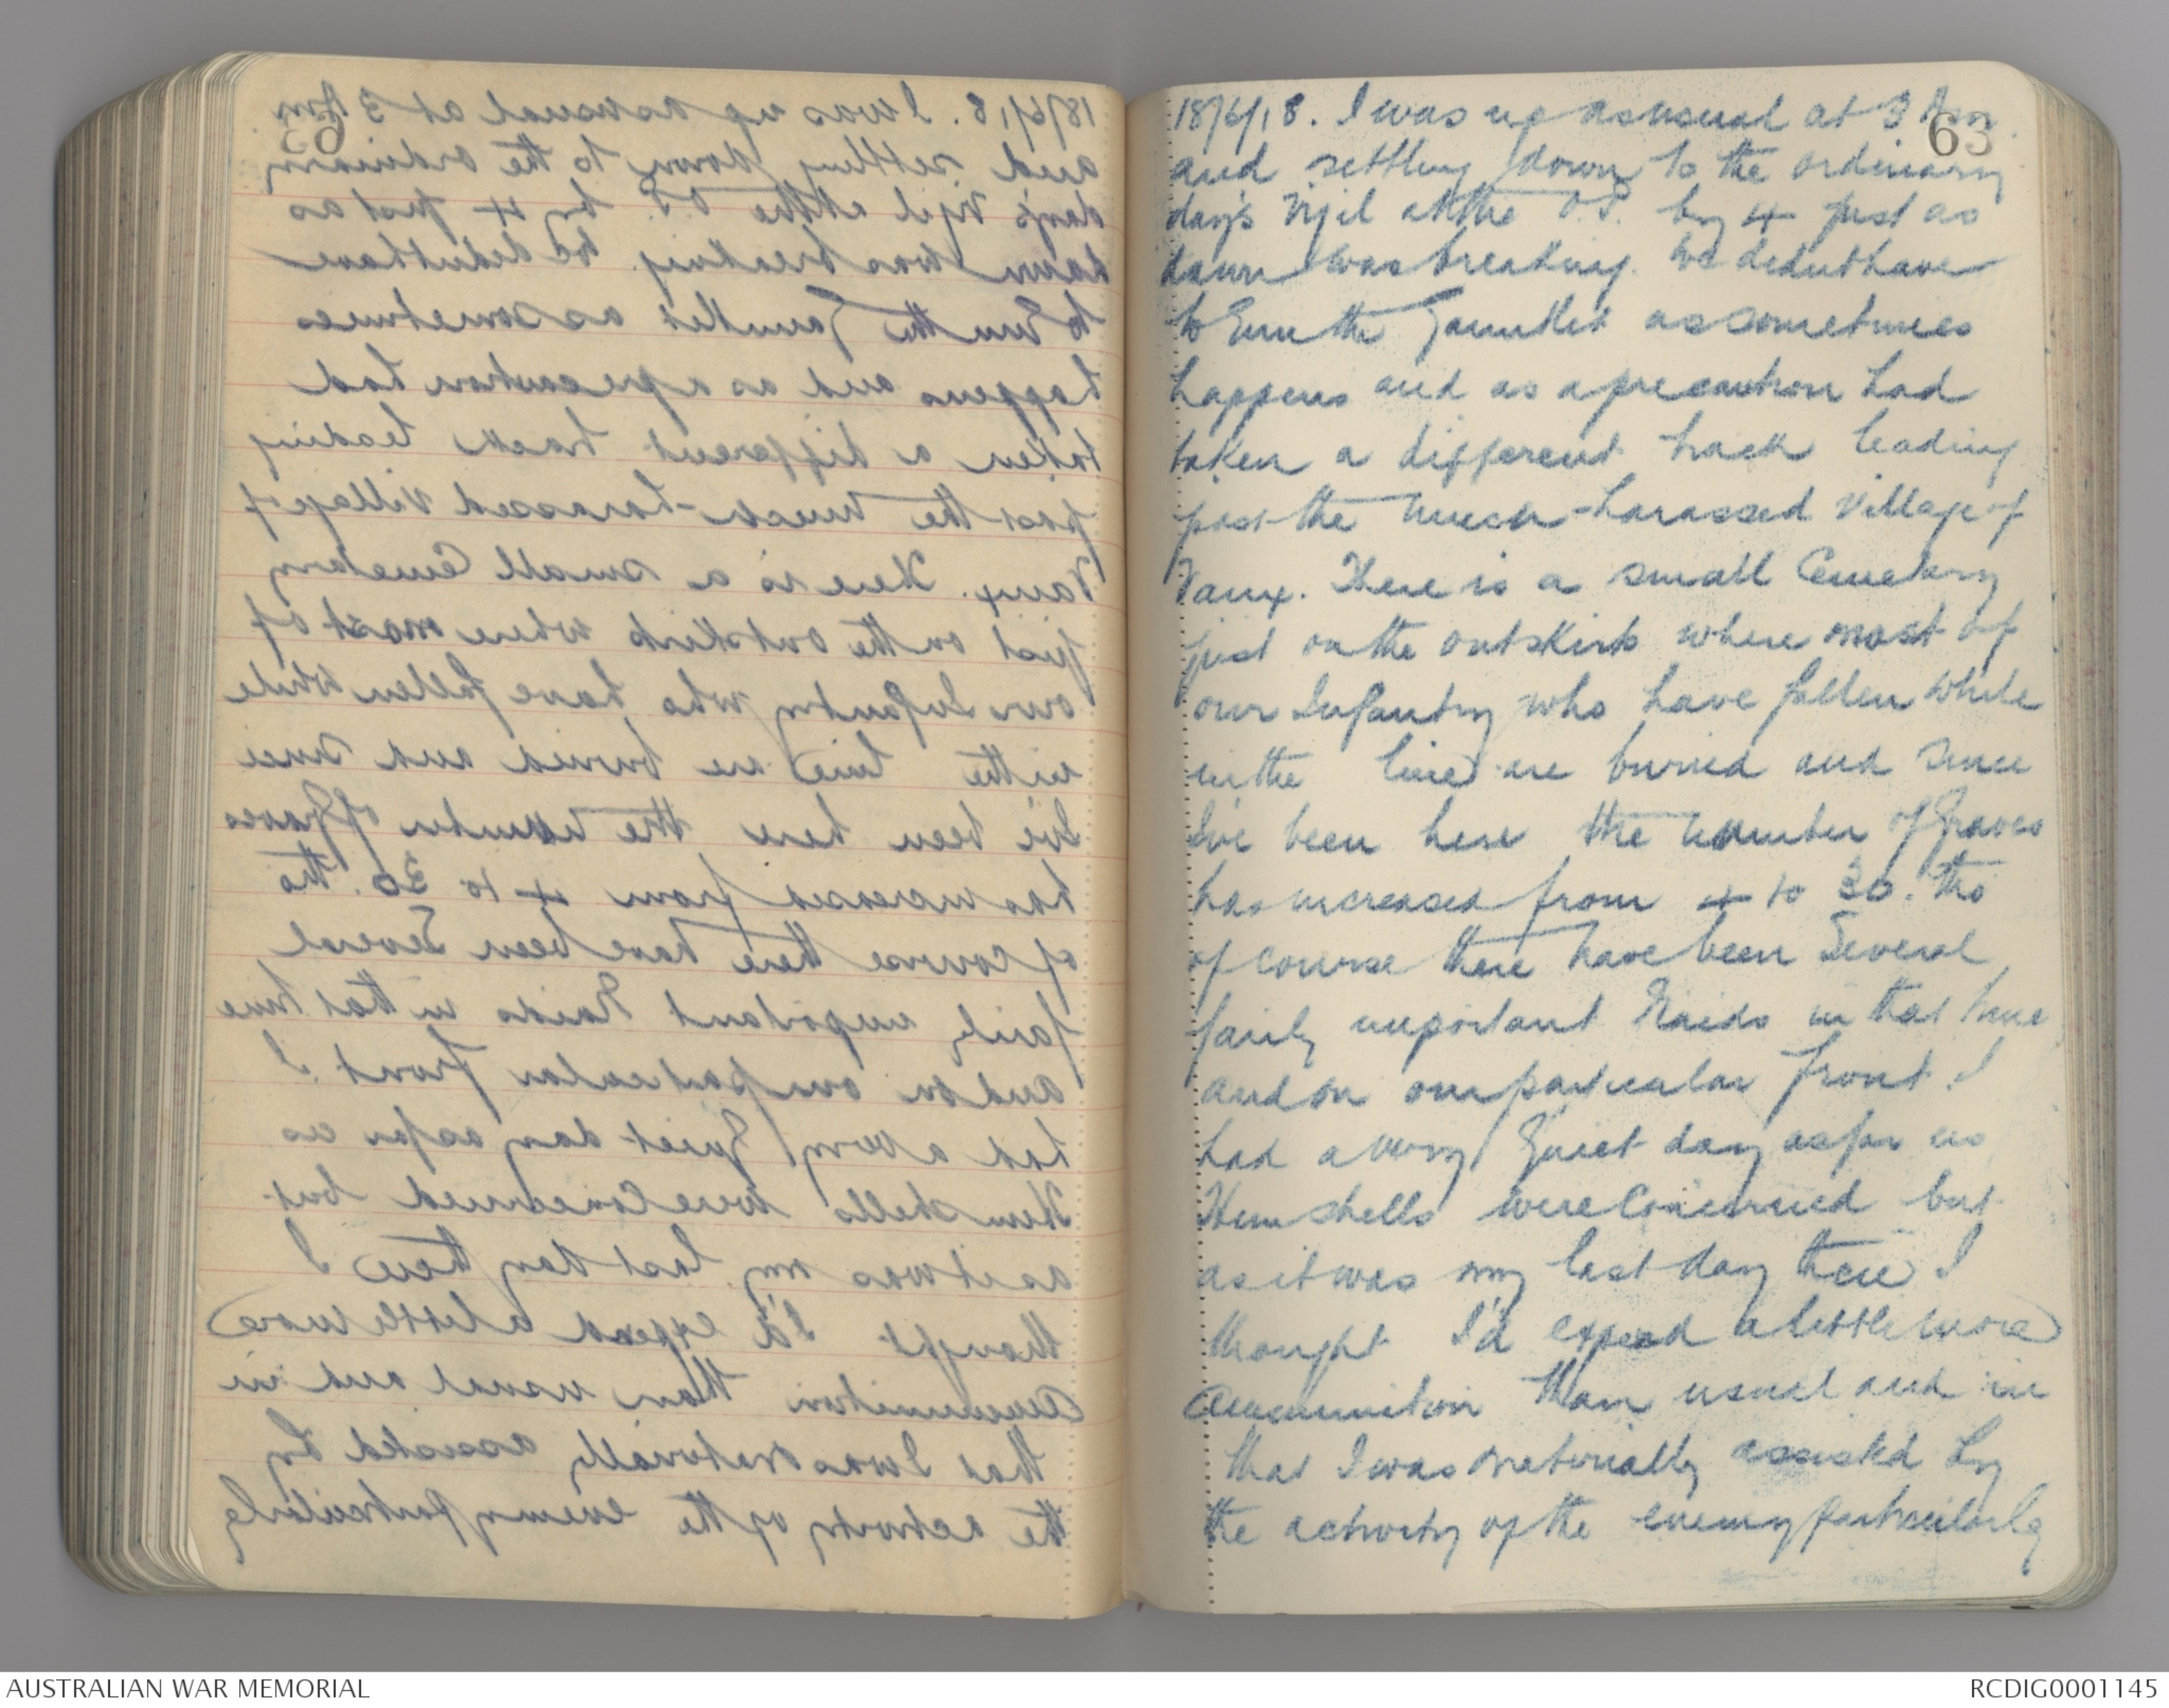 63
18/6/18. I was up as usual at 3 Am.
and settling down to the ordinary
day's vigil at the O.P. by 4 just as
dawn was breaking. We didnt have
to Run the Gauntlet as sometimes
happens and as a precaution had
taken a different track leading
past the much-harassed village of
Vaux. There is a small Cemetary
just on the outskirts where most of
our Infantry who have fallen while
in the line are buried and since
I've been here the number of Graves
has increased from 4 to 30. tho
of course there have been Several
fairly important Raids in that time
and on our particular front. I
had a very Quiet day as far as
Hun shells were Concerned but
as it was my last day there I
thought I'd expend a little more
Ammunition than usual and in
that I was materially assisted by
the activity of the enemy particularly
AUSTRALIAN WAR MEMORIAL
RCDIG0001145